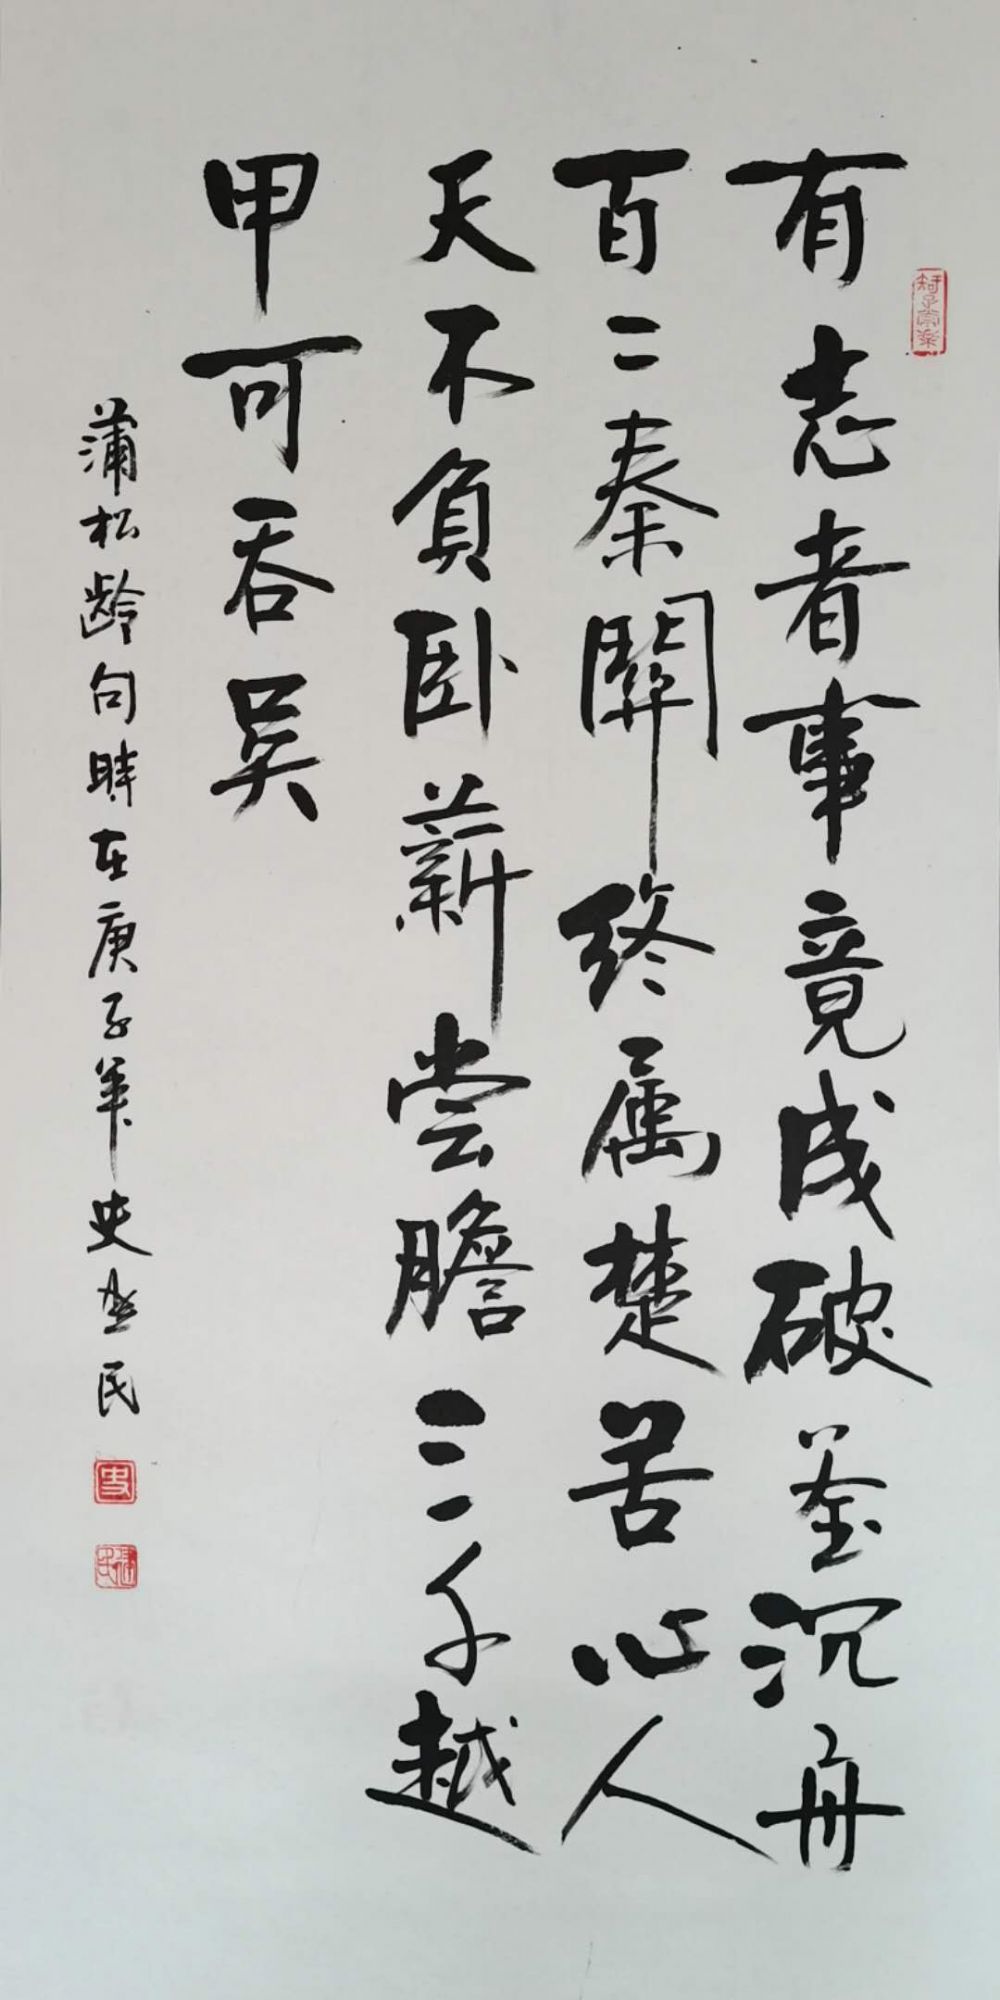 知足常樂
有志者事竟成破釜沉舟
百二秦關终属楚苦心人
天不負卧薪尝膽三千越
甲可吞吴
蒲松龄句時在庚子年史民
史